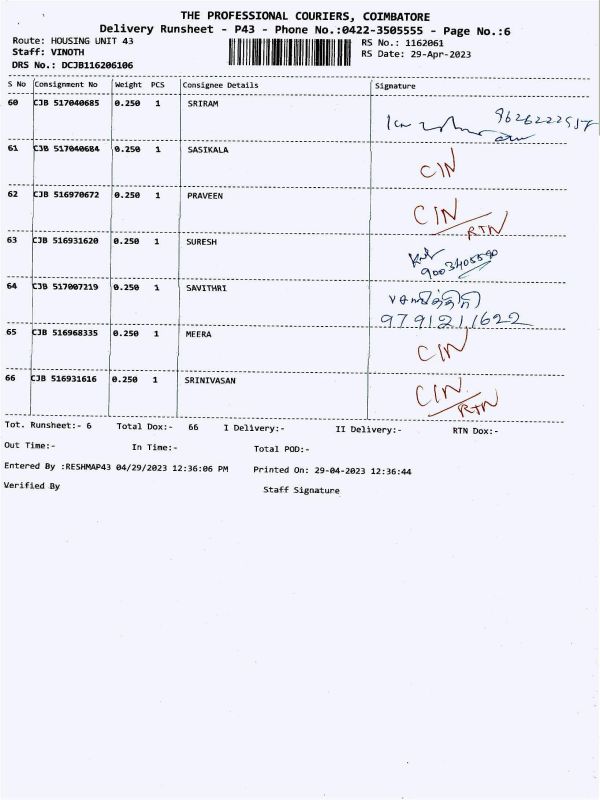 THE PROFESSIONAL COURIERS, COIMBATORE
Delivery Runsheet - P43 - Phone No.:0422-3505555 - Page No.:6
Route: HOUSING UNIT 43 RS No.: 1162061
Staff: VINOTH RS Date: 29-Apr-2023
DRS No.: DCJB116206106
S No Consignment No Weight PCS Consignee Details Signature
60 CJB 517040685 0.250 1 SRIRAM
61 CJB 517040684 0.250 1 SASIKALA CIN
62 CJB 516970672 0.250 1 PRAVEEN CIN
RTN
63 CJB 516931620 0.250 1 SURESH
64 CJB 517007219 0.250 1 SAVITHRI
9791211622
65 CJB 516968335 0.250 1 MEERA CIN
66 CJB 516931616 0.250 1 SRINIVASAN CIN
RTN
Tot. Runsheet:- 6 Total Dox:- 66 I Delivery:- II Delivery:- RTN Dox:-
Out Time:- In Time:- Total POD:-
Entered By :RESHMAP43 04/29/2023 12:36:06 PM Printed On: 29-04-2023 12:36:44
Verified By Staff Signature